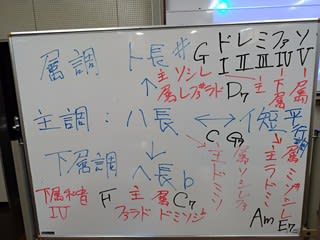 属調 ト長♯ G ドレミファソ
I II III IV V
↑ 主ソシレ 主 下属 属
属レファラド D7
主調:ハ長 ↔ イ短 平行調
C G7
主ドミソ 属ソシレファ 主ラドミ 属ミソシレ
下属調 ヘ長♭
下属和音 F 主 属 C7 Am E7
IV ファラド ドミソシ♭